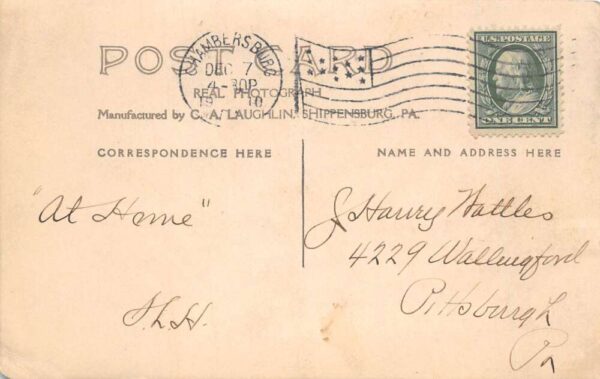 POST CARD
CHAMBERSBURG
DEC 7
4-30P
1910
PA.
REAL PHOTOGRAPH
Manufactured by C. A. LAUGHLIN, SHIPPENSBURG, PA.
U.S. POSTAGE
ONE CENT
CORRESPONDENCE HERE
NAME AND ADDRESS HERE
"At Home"
J Harvey Wattles
4229 Wallingford
Pittsburgh
Pa